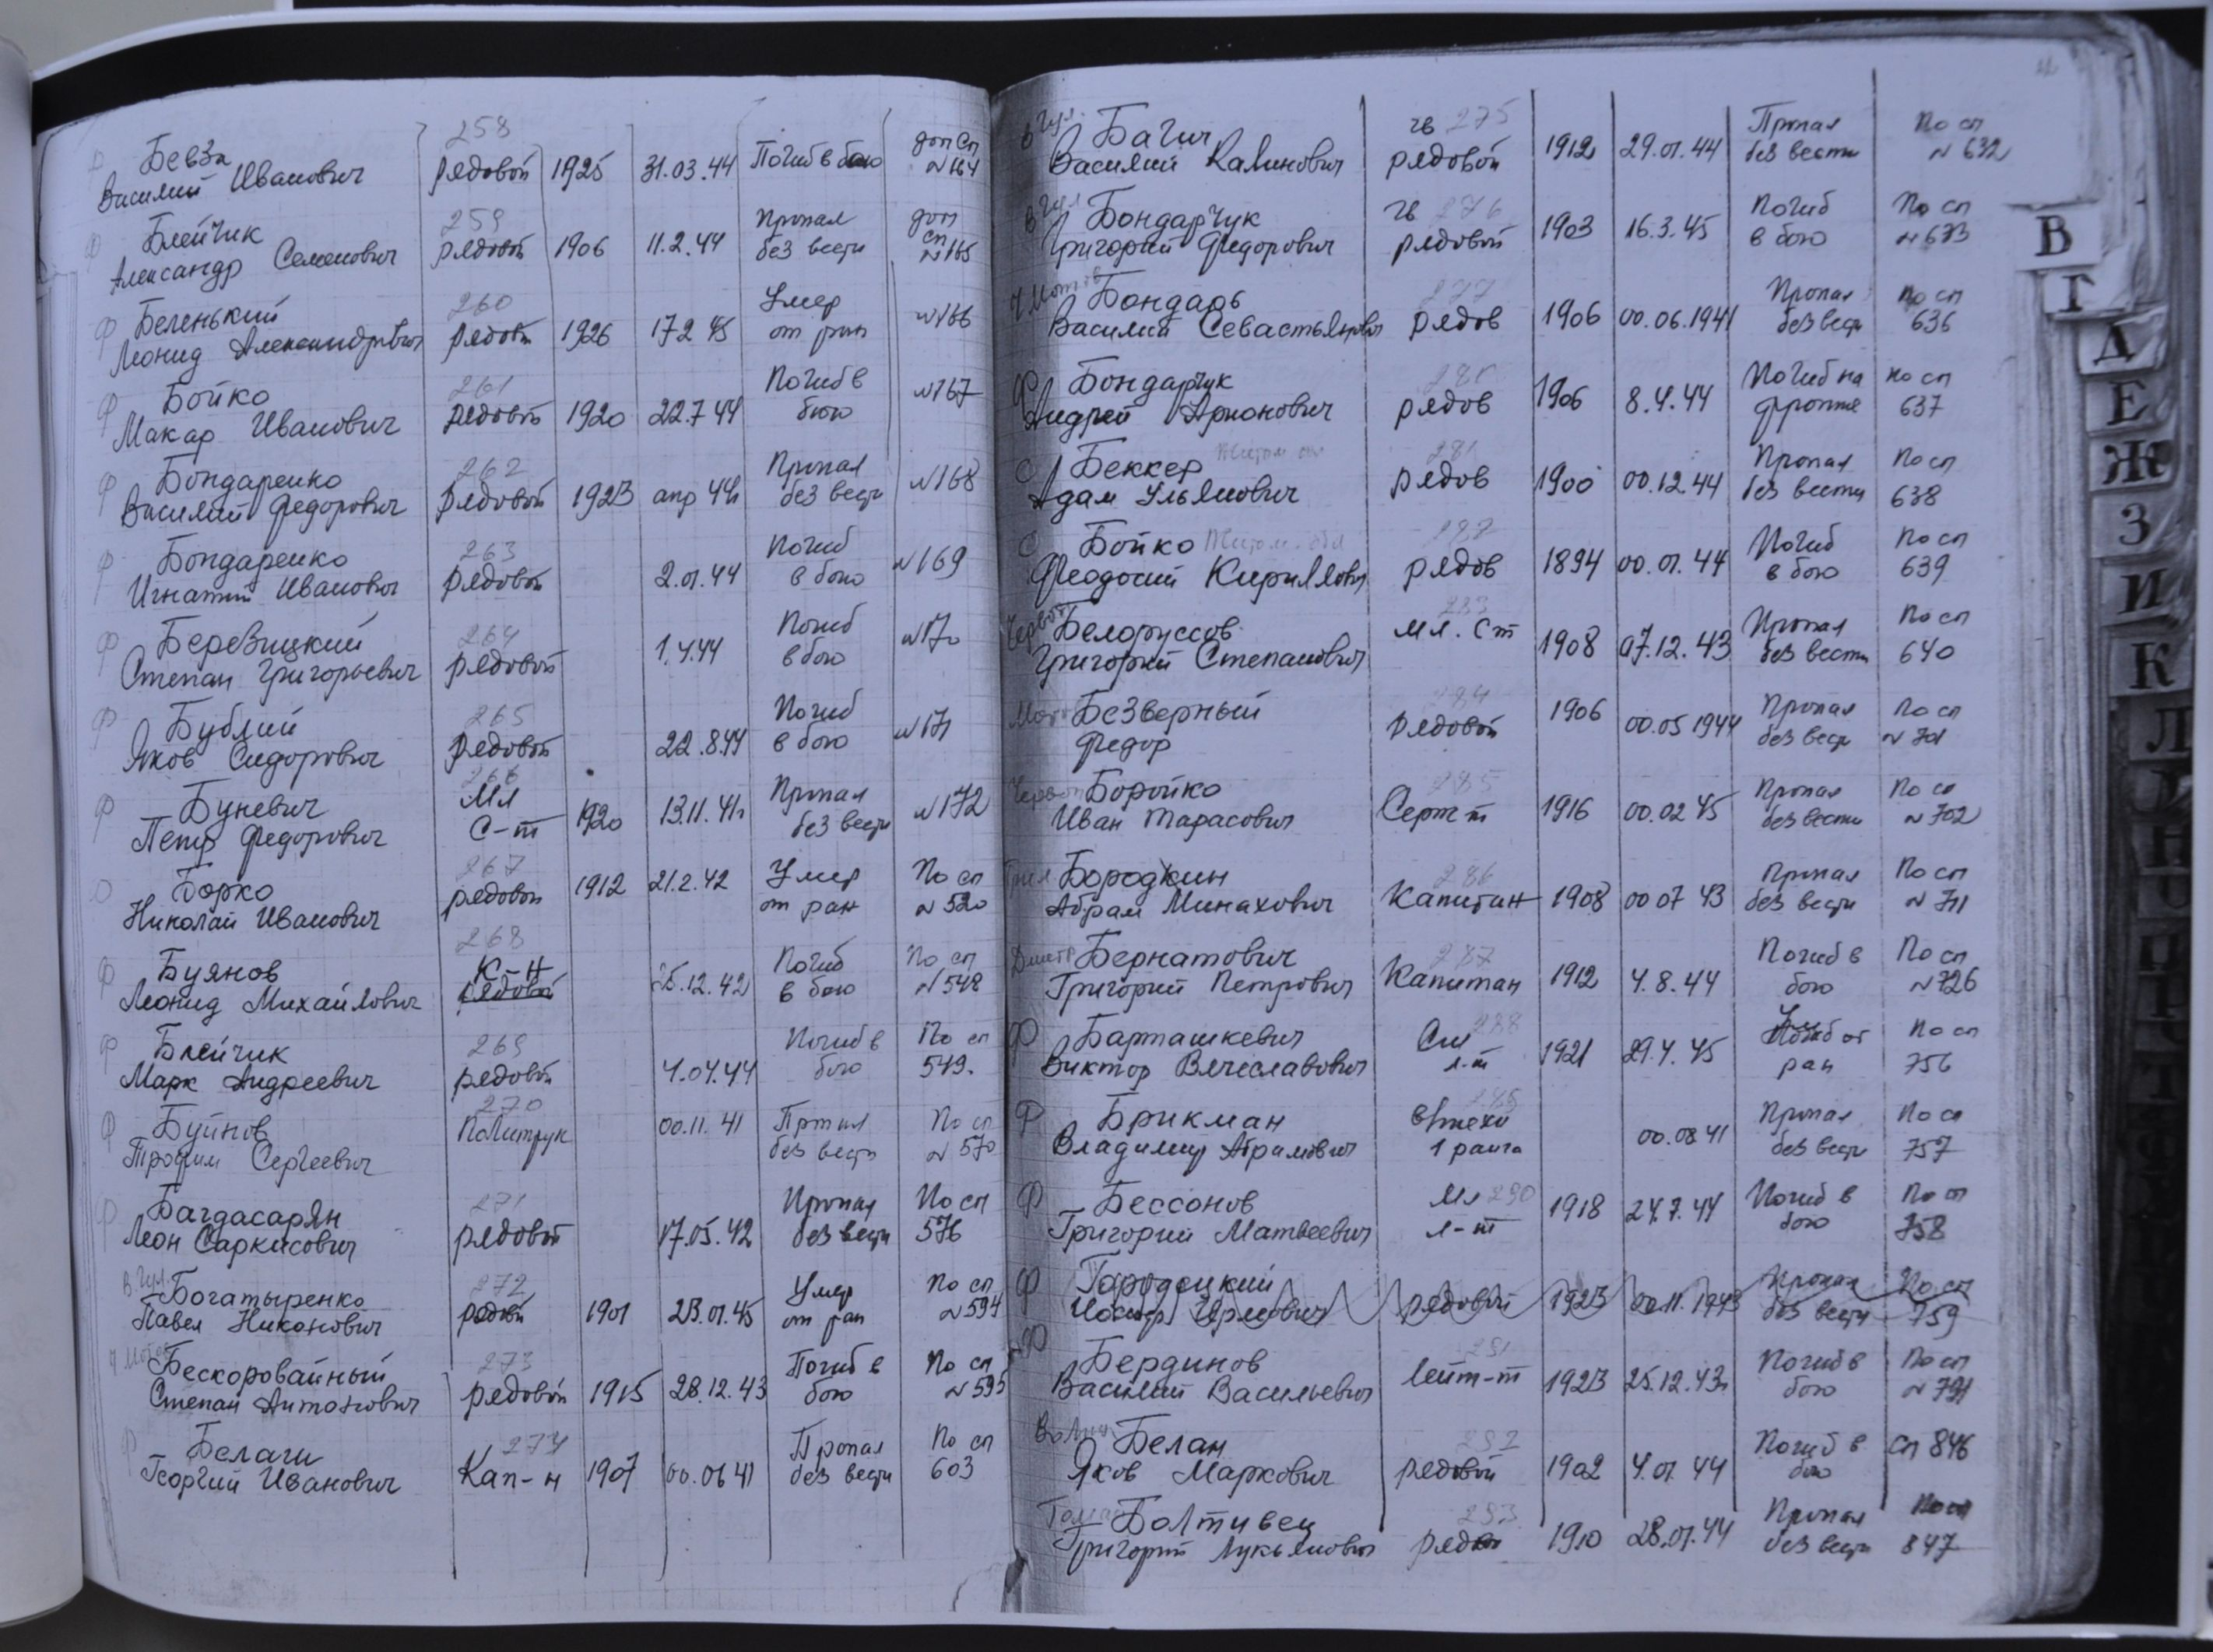 258
Бевза
Василий Иванович рядовой 1925 31.03.44 Погиб в бою доп сп №164
259
Блейчик
Александр Семенович рядовой 1906 11.2.44 Пропал без вести доп сп №165
260
Беленький
Леонид Александрович рядовой 1926 17 2 45 Умер от ран №166
261
Бойко
Макар Иванович рядовой 1920 22.7 44 Погиб в бою №167
262
Бондаренко
Василий Федорович рядовой 1923 апр 44 Пропал без вести №168
263
Бондаренко
Игнатий Иванович рядовой 2.01.44 Погиб в бою №169
264
Березицкий
Степан Григорьевич рядовой 1.4.44 Погиб в бою №170
265
Бублий
Яков Сидорович рядовой 22.8.44 Погиб в бою №171
266
Буневич
Петр Федорович Мл С-т 1920 13.11.41 Пропал без вести №172
267
Борко
Николай Иванович рядовой 1912 21.2.42 Умер от ран По сп №520
268
Буянов
Леонид Михайлович К-н рядовой 25.12.42 Погиб в бою По сп №548
269
Блейчик
Марк Андреевич рядовой 4.04.44 Погиб в бою По сп 549.
270
Буйнов
Трофим Сергеевич Политрук 00.11.41 Пропал без вести По сп №570
271
Багдасарян
Леон Саркисович рядовой 17.05.42 Пропал без вести По сп 576
272
Богатыренко
Павел Никонович рядовой 1901 23.01.45 Умер от ран По сп №594
273
Бескоровайный
Степан Антонович рядовой 1915 28.12.43 Погиб в бою По сп №595
274
Белаги
Георгий Иванович Кап-н 1907 00.06 41 Пропал без вести По сп 603
В Гул.
Багич гв 275
Василий Калинович рядовой 1912 29.01.44 Пропал без вести По сп №632
В Гул
Бондарчук гв 276
Григорий Федорович рядовой 1903 16.3.45 Погиб в бою По сп №633
277
Бондарь
Василий Севастьянович рядов 1906 00.06.1941 Пропал без вести По сп 636
280
Бондарчук
Андрей Арионович рядов 1906 8.4.44 Погиб на фронте по сп 637
281
Беккер
Адам Ульянович рядов 1900 00.12.44 Пропал без вести По сп 638
Бойко Житом. обл
Феодосий Кириллович рядов 1894 00.01.44 Погиб в бою По сп 639
283
Белоруссов
Григорий Степанович Мл. Ст 1908 07.12.43 Пропал без вести По сп 640
284
Безверный
Федор рядовой 1906 00.05 1944 Пропал без вести По сп №701
285
Боройко
Иван Тарасович Серж т 1916 00.02 45 Пропал без вести По сп №702
286
Бородкин
Абрам Минахович Капитан 1908 00 07 43 Пропал без вести По сп №711
287
Бернатович
Григорий Петрович Капитан 1912 4.8.44 Погиб в бою По сп №726
288
Барташкевич
Виктор Вячеславович л-т 1921 29.4.45 от ран По сп 756
Брикман
Владимир Абрамович 1 ранга 00.08 41 Пропал без вести По сп 757
290
Бессонов
Григорий Матвеевич Мл л-т 1918 24.7.44 Погиб в бою По сп 758
Городецкий
Иосиф рядовой 1923 00.11.1943 Пропал без вести По сп 759
291
Бердинов
Василий Васильевич Лейт-т 1923 25.12.43 Погиб в бою По сп №791
292
Белан
Яков Маркович рядовой 1902 4.01.44 Погиб в бою сп 846
293
Болтивец
Григорий Лукьянович рядовой 1910 28.01.44 Пропал без вести По сп 847
В
Г
Д
Е
Ж
З
И
К
Л